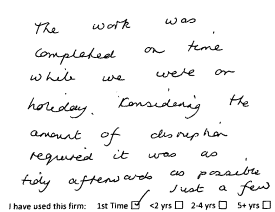 The work was
completed on time
while we were on
holiday. Considering the
amount of disruption
required it was as
tidy afterwards as possible
Just a few
I have used this firm: 1st Time ☑ <2 yrs ☐ 2-4 yrs ☐ 5+ yrs ☐